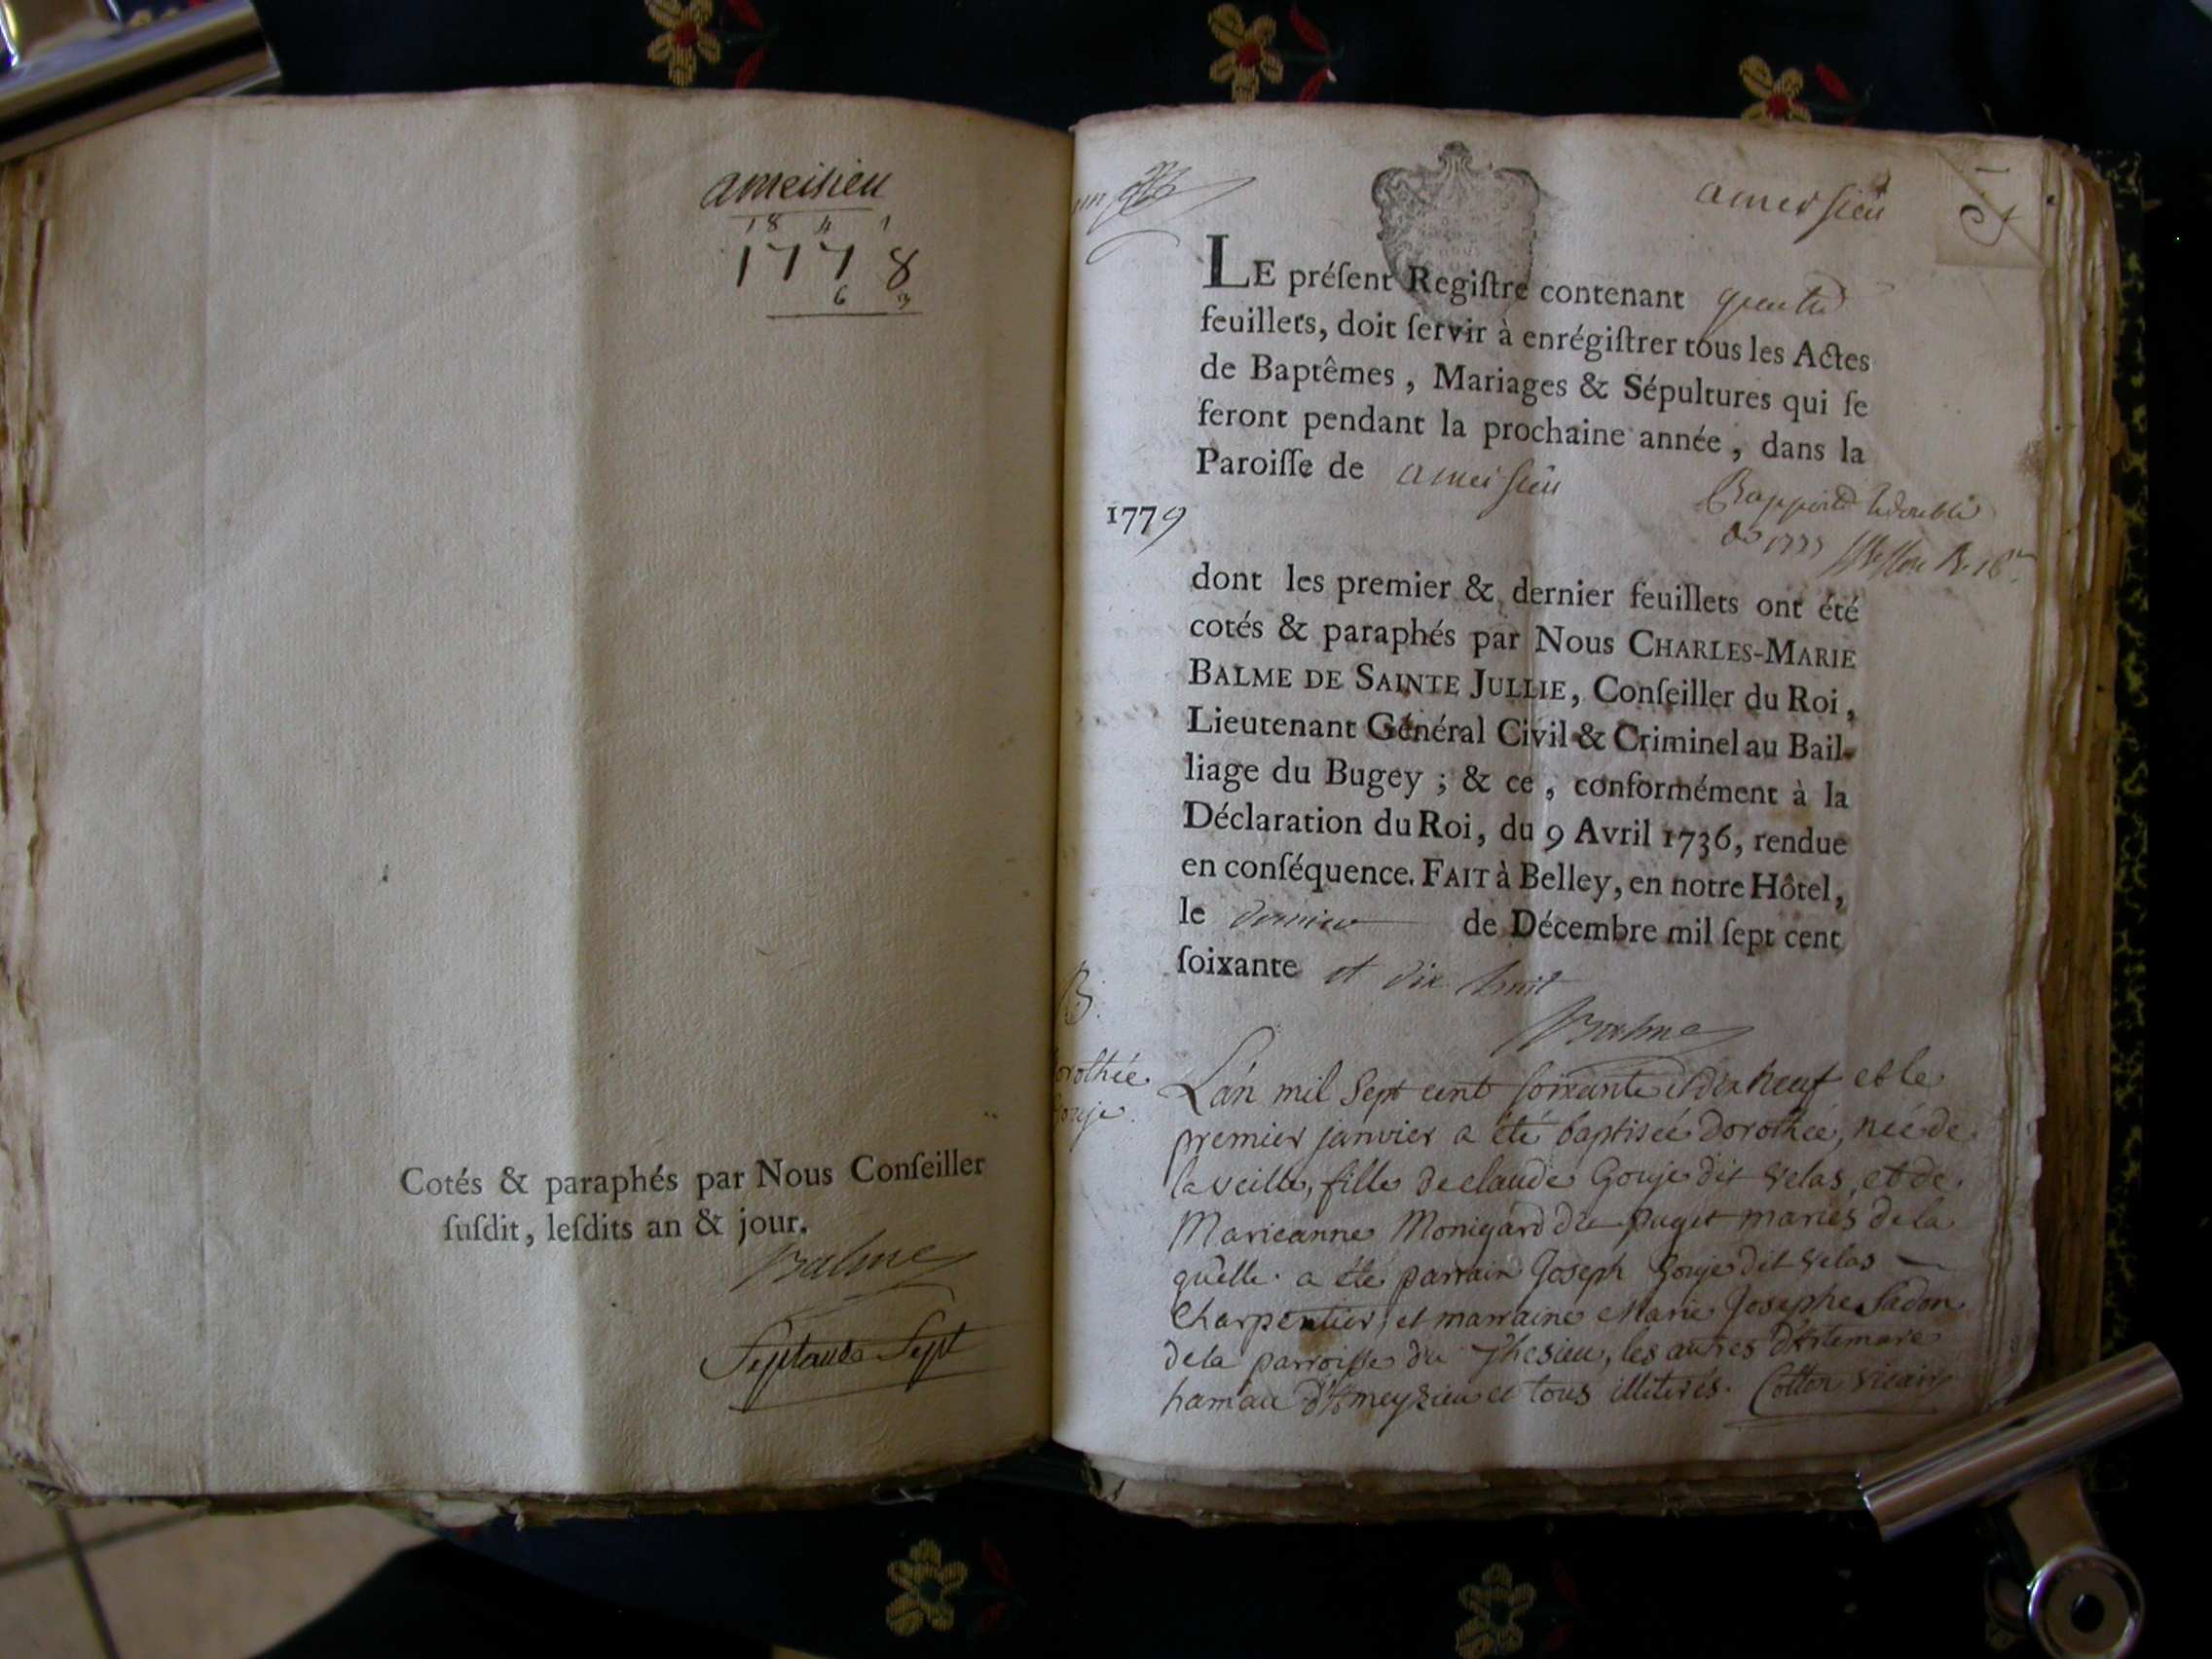 ameisieu
18 4 1
1778
6 3
Cotés & paraphés par Nous Conſeiller
ſuſdit, leſdits an & jour.
Balme
Septante Sept
un
ameisieu
LE préſent Regiſtre contenant quatre
feuillets, doit ſervir à enrégiſtrer tous les Actes
de Baptêmes, Mariages & Sépultures qui ſe
feront pendant la prochaine année, dans la
Paroiſſe de ameisieu
Rapporté le double
1779
de 1777
dont les premier & dernier feuillets ont été
cotés & paraphés par Nous CHARLES-MARIE
BALME DE SAINTE JULLIE, Conſeiller du Roi,
Lieutenant Général Civil & Criminel au Bail-
liage du Bugey ; & ce, conformément à la
Déclaration du Roi, du 9 Avril 1736, rendue
en conſéquence. FAIT à Belley, en notre Hôtel,
le dernier de Décembre mil ſept cent
ſoixante et dix huit
Balme
B.
orothée
Gouje.
L'an mil Sept cent soixante et dix neuf et le
premier janvier a été baptisée Dorothée, née de
la veille, fille de claude Gouje dit velas, et de
Marieanne Monigard du puget mariés de la
quelle a été parrain Joseph Gouje dit velas
Charpentier, et marraine Marie Josephe Sadon
de la parroisse de Thesieu, les autres d'Artemare
hamau d'Ameyzieu et tous illiterés. Cotton vicair